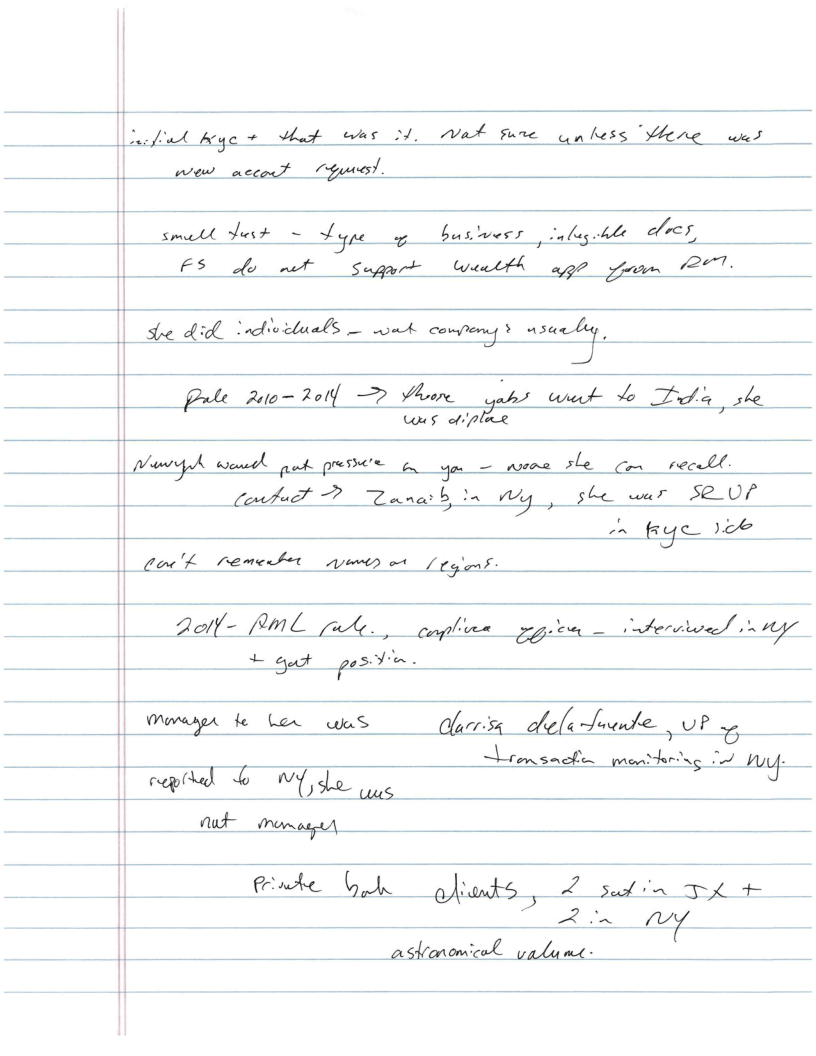 initial kyc + that was it. Not sure unless there was
new accout request.
small test - type of business, inlegible docs,
FS do not support wealth app from RM.
she did individuals - not company's usually.
Role 2010-2014 → those jobs went to India, she
was displae
Newyork would put pressure on you - none she can recall.
contact → Zanaib, in NY, she was SR VP
in kyc side
can't remember names or regions.
2014 - AML role., complince officer - interviewed in NY
+ got position.
manager to her was clarrisa dela fuente, VP of
transaction monitoring in NY.
reported to NY, she was
not manager
Private bank clients, 2 sat in JX +
2 in NY
astronomical volume.